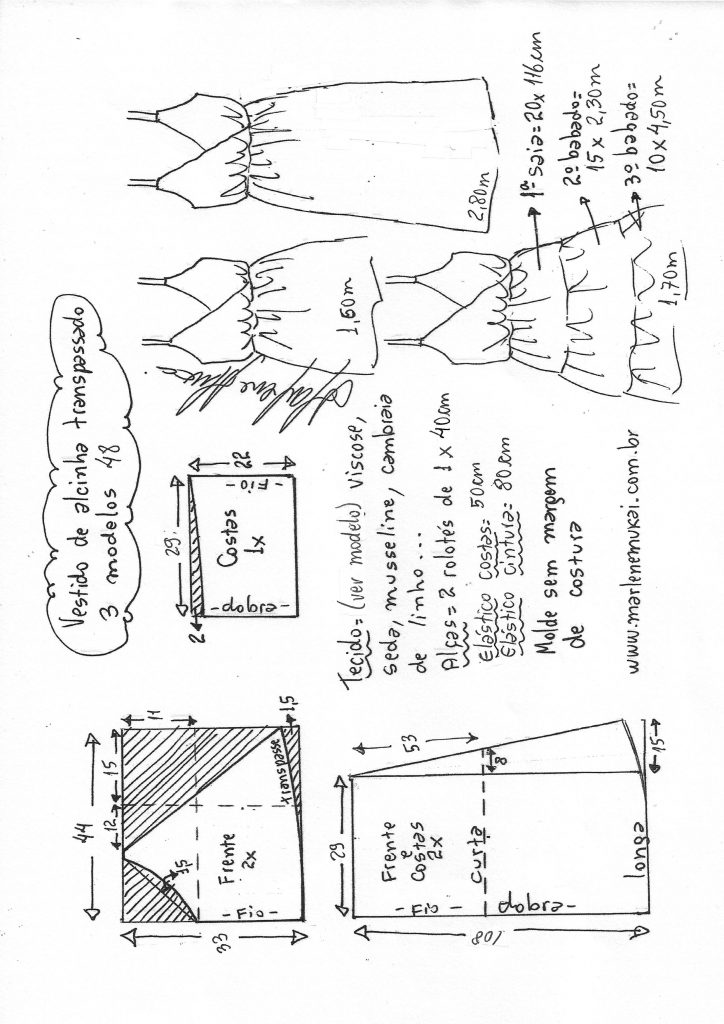 Vestido de alcinha transpassado
3 modelos 48
44
12
15
11
33
1,5
1,5
transpasse
Frente
2x
-Fio-
29
2
22
Costas
1x
-Fio-
dobra-
2,80m
1,60m
1,70m
1ª saia = 20x 116cm
2º babado =
15 x 2,30m
3º babado =
10 x 4,50m
Tecido = (ver modelo) viscose,
seda, musseline, cambraia
de linho...
Alças = 2 rolotês de 1 x 40cm
Elástico costas = 50cm
Elástico cintura = 80cm
Molde sem margem
de costura
www.marlenemukai.com.br
29
53
8
15
108
Frente
e
Costas
2x
curta
longa
-Fio-
dobra-